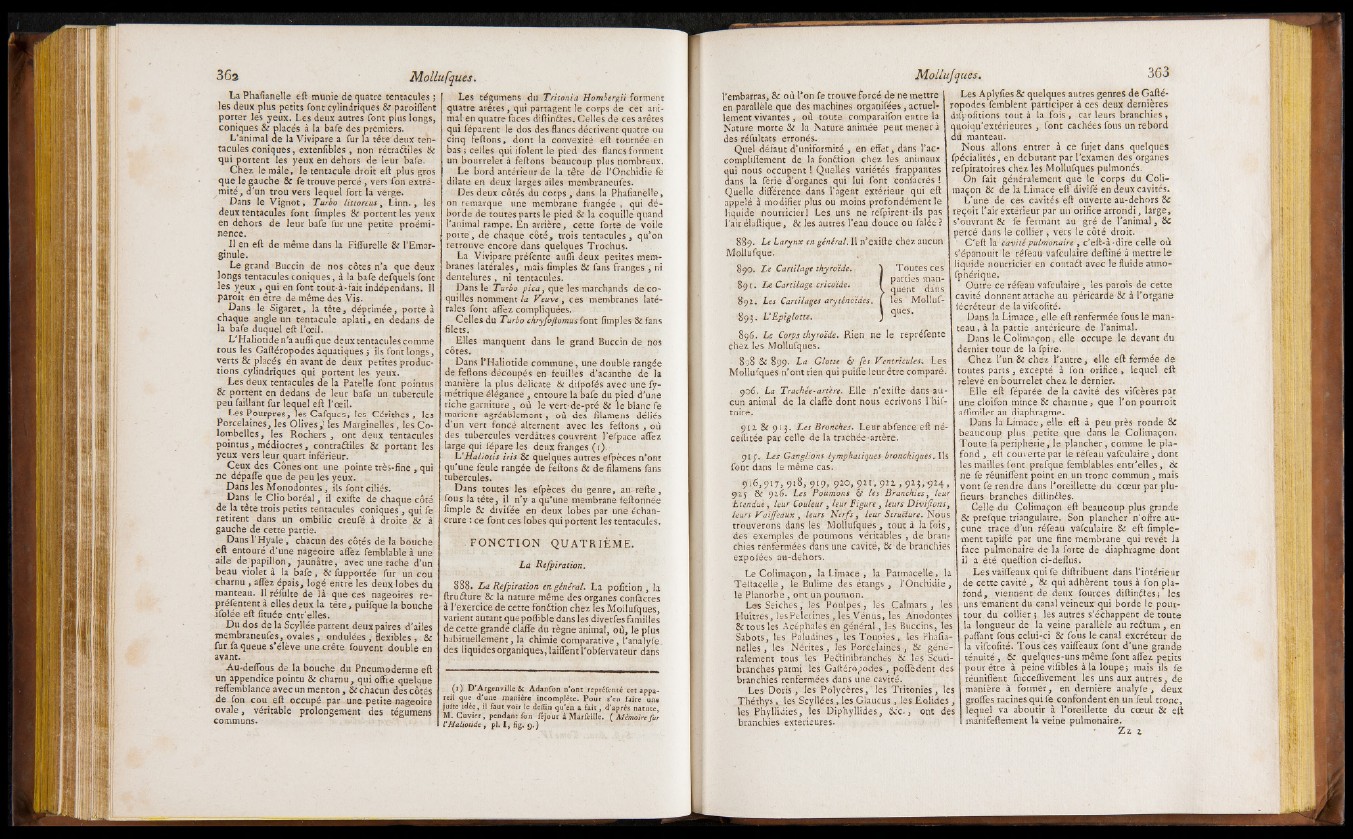 362 Mollusques.
La Phasianelle est munie de quatre tentacules ;
les deux plus petits sont cylindriques & paroissent
porter les yeux. Les deux autres sont plus longs,
coniques & placés à la base des premiers.
L'animal de la Vivipare a sur la tête deux ten-
tacules coniques, extensibles, non rétractiles &
qui portent les yeux en dehors de leur base.
Chez le mâle, le tentacule droit est plus gros
que le gauche & se trouve percé, vers son extré-
mité, d'un trou vers lequel sort la verge.
Dans le Vignot, Turbo littoreus, Linn., les
deux tentacules sont simples & portent les yeux
en dehors de leur base sur une petite proémi-
nence.
Il en est de même dans la Fissurelle & l'Emar-
ginule.
Le grand Buccin de nos côtes n'a que deux
longs tentacules coniques, à la base desquels sont
les yeux, qui en sont tout-à-fait indépendans. Il
paroît en être de même des Vis.
Dans le Sigaret, la tête, déprimée, porte à
chaque angle un tentacule aplati, en dedans de
la base duquel est l'œil.
L'Haliotide n'a aussi que deux tentacules comme
tous les Gastéropodes aquatiques ; ils sont longs,
verts & placés en avant de deux petites produc-
tions cylindriques qui portent les yeux.
Les deux tentacules de la Patelle sont pointus
& portent en dedans de leur base un tubercule
peu saillant sur lequel est l'œil.
Les Pourpres, les Casques, les Cérithes, les
Porcelaines, les Olives, les Marginelles, les Co-
lombelles, les Rochers, ont deux tentacules
pointus, médiocres, contractiles & portant les
yeux vers leur quart inférieur.
Ceux des Cônes ont une pointe très-fine, qui
ne dépasse que de peu les yeux.
Dans les Monodontes, ils sont ciliés.
Dans le Clio boréal, il existe de chaque côté
de la tête trois petits tentacules coniques, qui se
retirent dans un ombilic creusé à droite & à
gauche de cette partie.
Dans l'Hyale, chacun des côtés de la bouche
est entouré d'une nageoire assez semblable à une
aîle de papillon, jaunâtre, avec une tache d'un
beau violet à la base, & supportée sur un cou
charnu, assez épais, logé entre les deux lobes du
manteau. Il résulte de là que ces nageoires re-
présentent à elles deux la tête, puisque la bouche
isolée est située entr'elles.
Du dos de la Scyllée partent deux paires d'ailes
membraneuses, ovales, ondulées, flexibles, &
sur sa queue s'élève une crête souvent double en
avant.
Au-dessous de la bouche du Pneumoderme est
un appendice pointu & charnu, qui offre quelque
ressemblance avec un menton, & chacun des côtés
de son cou est occupé par une petite nageoire
ovale, véritable prolongement des tégumens
communs.
Les tégumens du Tritonia Hombergii forment
quatre arêtes, qui partagent le corps de cet ani-
mal en quatre faces distinctes. Celles de ces arêtes
qui séparent le dos des flancs décrivent quatre ou
cinq festons, dont la convexité est tournée en
bas ; celles qui isolent le pied des flancs forment
un bourrelet à festons beaucoup plus nombreux.
Le bord antérieur de la tête de l'Onchidie se
dilate en deux larges ailes membraneuses.
Des deux côtés du corps, dans la Phasianelle,
on remarque une membrane frangée, qui dé-
borde de toutes parts le pied & la coquille quand
l'animal rampe. En arrière, cette sorte de voile
porte, de chaque côté, trois tentacules, qu'on
retrouve encore dans quelques Trochus.
La Vivipare présente aussi deux petites mem-
branes latérales, mais simples & sans franges, ni
dentelures, ni tentacules.
Dans le Turbo pica, que les marchands de co-
quilles nomment la Veuve, ces membranes laté-
rales sont assez compliquées.
Celles du Turbo chrysostomus sont simples & sans
filets.
Elles manquent dans le grand Buccin de nos
côtes.
Dans l'Haliotide commune, une double rangée
de festons découpés en feuilles d'acanthe de la
manière la plus délicate & disposés avec une sy-
métrique élégance, entoure la base du pied d'une
riche garniture, où le vert-de-pré & le blanc se
marient agréablement, où des filamens déliés
d'un vert foncé alternent avec les festons, où
des tubercules verdâtres couvrent l'espace assez
large qui sépare les deux franges (1).
L'Haliotis iris & quelques autres espèces n'ont
qu'une seule rangée de festons & de filamens sans
tubercules.
Dans toutes les espèces du genre, au reste,
sous la tête, il n'y a qu'une membrane festonnée
simple & divisée en deux lobes par une échan-
crure : ce sont ces lobes qui portent les tentacules.
FONCTION QUATRIÈME.
La Respiration.
888. La Respiration en général. La position, la
structure & la nature même des organes consacrés
à l'exercice de cette fonction chez les Mollusques,
varient autant que possible dans les diverses familles
de cette grande classe du règne animal, où, le plus
habituellement, la chimie comparative, l'analyse
des liquides organiques, laissent l'observateur dans
(1) D'Argenville & Adanson n'ont représenté cet appa-
reil que d'une manière incomplète. Pour s'en faire une
juste idée, il faut voir le dessin qu'en a fait, d'après nature,
M. Cuvier, pendant son séjour à Marseille. (Mémoire sur
l'Haliotide, pl. I, fig. 9.)
Mollusques. 363
l'embarras, & où l'on se trouve forcé de ne mettre
en parallèle que des machines organisées, actuel-
lement vivantes, où toute comparaison entre la
Nature morte & la Nature animée peut mener à
des résultats erronés.
Quel défaut d'uniformité, en effet, dans l'ac-
complissement de la fonction chez les animaux
qui nous occupent ! Quelles variétés frappantes
dans la série d'organes qui lui sont consacrés !
Quelle différence dans l'agent extérieur qui est
appelé à modifier plus ou moins profondément le
liquide nourricier ! Les uns ne respirent-ils pas
l'air élastique, & les autres l'eau douce ou salée ?
889. Le Larynx en général. Il n'existe chez aucun
Mollusque.
890. Le Cartilage thyroïde.
891. Le Cartilage cricoïde.
892. Les Cartilages aryténoïdes.
893. L'Epiglotte.
Toutes ces
parties man-
quent dans
les Mollus-
ques.
896. Le Corps thyroïde. Rien ne le représente
chez les Mollusques.
898 & 899. La Glotte & ses Ventricules. Les
Mollusques n'ont rien qui puisse leur être comparé.
906. La Trachée-artère. Elle n'existe dans au-
cun animal de la classe dont nous écrivons l'his-
toire.
912 & 913. Les Bronches. Leur absence est né-
cessitée par celle de la trachée-artère.
915. Les Ganglions lymphatiques bronchiques. Ils
sont dans le même cas.
916, 917, 918, 919, 920, 921, 922, 923, 924,
925 & 926. Les Poumons & les Branchies, leur
Etendue, leur Couleur, leur Figure, leurs Divisions,
leurs Vaisseaux, leurs Nerfs, leur Structure. Nous
trouverons dans les Mollusques, tout à la fois,
des exemples de poumons véritables, de bran-
chies renfermées dans une cavité, & de branchies
exposées au-dehors.
Le Colimaçon, la Limace, la Parmacelle, la
Testacelle, le Bulime des étangs, l'Onchidie,
le Planorbe, ont un poumon.
Les Seiches, les Poulpes, les Calmars, les
Huîtres, les Pèlerines, les Vénus, les Anodontes
& tous les Acéphales en général, les Buccins, les
Sabots, les Paludines, les Toupies, les Phasia-
nelles, les Nérites, les Porcelaines, & géné-
ralement tous les Pectinibranches & les Scuti-
branches parmi les Gastéropodes, possèdent des
branchies renfermées dans une cavité.
Les Doris, les Polycères, les Tritonies, les
Théthys, les Scyllées, les Glaucus, les Eolides,
les Phyllidies, les Diphyllides, &c., ont des
branchies extérieures.
Les Aplysies & quelques autres genres de Gasté-
ropodes semblent participer à ces deux dernières
dispositions tout à la fois, car leurs branchies,
quoiqu'extérieures, sont cachées sous un rebord
du manteau.
Nous allons entrer à ce sujet dans quelques
spécialités, en débutant par l'examen des organes
respiratoires chez les Mollusques pulmonés.
On sait généralement que le corps du Coli-
maçon & de la Limace est divisé en deux cavités.
L'une de ces cavités est ouverte au-dehors &
reçoit l'air extérieur par un orifice arrondi, large,
s'ouvrant & se fermant au gré de l'animal, &
percé dans le collier, vers le côté droit.
C'est la cavité pulmonaire, c'est-à-dire celle où
s'épanouit le réseau vasculaire destiné à mettre le
liquide nourricier en contact avec le fluide atmo-
sphérique.
Outre ce réseau vasculaire, les parois de cette
cavité donnent attache au péricarde & à l'organe
sécréteur de la viscosité.
Dans la Limace, elle est renfermée sous le man-
teau, à la partie antérieure de l'animal.
Dans le Colimaçon, elle occupe le devant du
dernier tour de la spire.
Chez l'un & chez l'autre, elle est fermée de
toutes parts, excepté à son orifice, lequel est
relevé en bourrelet chez le dernier.
Elle est séparée de la cavité des viscères par
une cloison mince & charnue, que l'on pourroit
assimiler au diaphragme.
Dans la Limace, elle est à peu près ronde &
beaucoup plus petite que dans le Colimaçon.
Toute sa périphérie, le plancher, comme le pla-
fond, est couverte par le réseau vasculaire, dont
les mailles sont presque semblables entr'elles, &
ne se réunissent point en un tronc commun, mais
vont se rendre dans l'oreillette du cœur par plu-
sieurs branches distinctes.
Celle du Colimaçon est beaucoup plus grande
& presque triangulaire. Son plancher n'offre au-
cune trace d'un réseau vasculaire & est simple-
ment tapissé par une fine membrane qui revêt la
face pulmonaire de la sorte de diaphragme dont
il a été question ci-dessus.
Les vaisseaux qui se distribuent dans l'intérieur
de cette cavité, & qui adhèrent tous à son pla-
fond, viennent de deux sources distinctes ; les
uns émanent du canal veineux qui borde le pour-
tour du collier ; les autres s'échappent de toute
la longueur de la veine parallèle au rectum, en
passant sous celui-ci & sous le canal excréteur de
la viscosité. Tous ces vaisseaux sont d'une grande
ténuité, & quelques-uns même sont assez petits
pour être à peine visibles à la loupe ; mais ils se
réunissent successivement les uns aux autres, de
manière à former, en dernière analyse, deux
grosses racines qui se confondent en un seul tronc,
lequel va aboutir à l'oreillette du cœur & est
manifestement la veine pulmonaire.
Zz 2